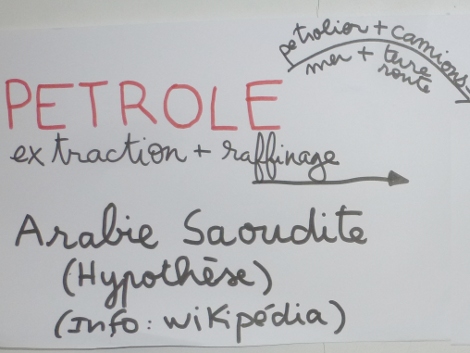 petrolier + camions
mer + terre
route
PETROLE
extraction + raffinage
Arabie Saoudite
(Hypothèse)
(Info : wikipédia)